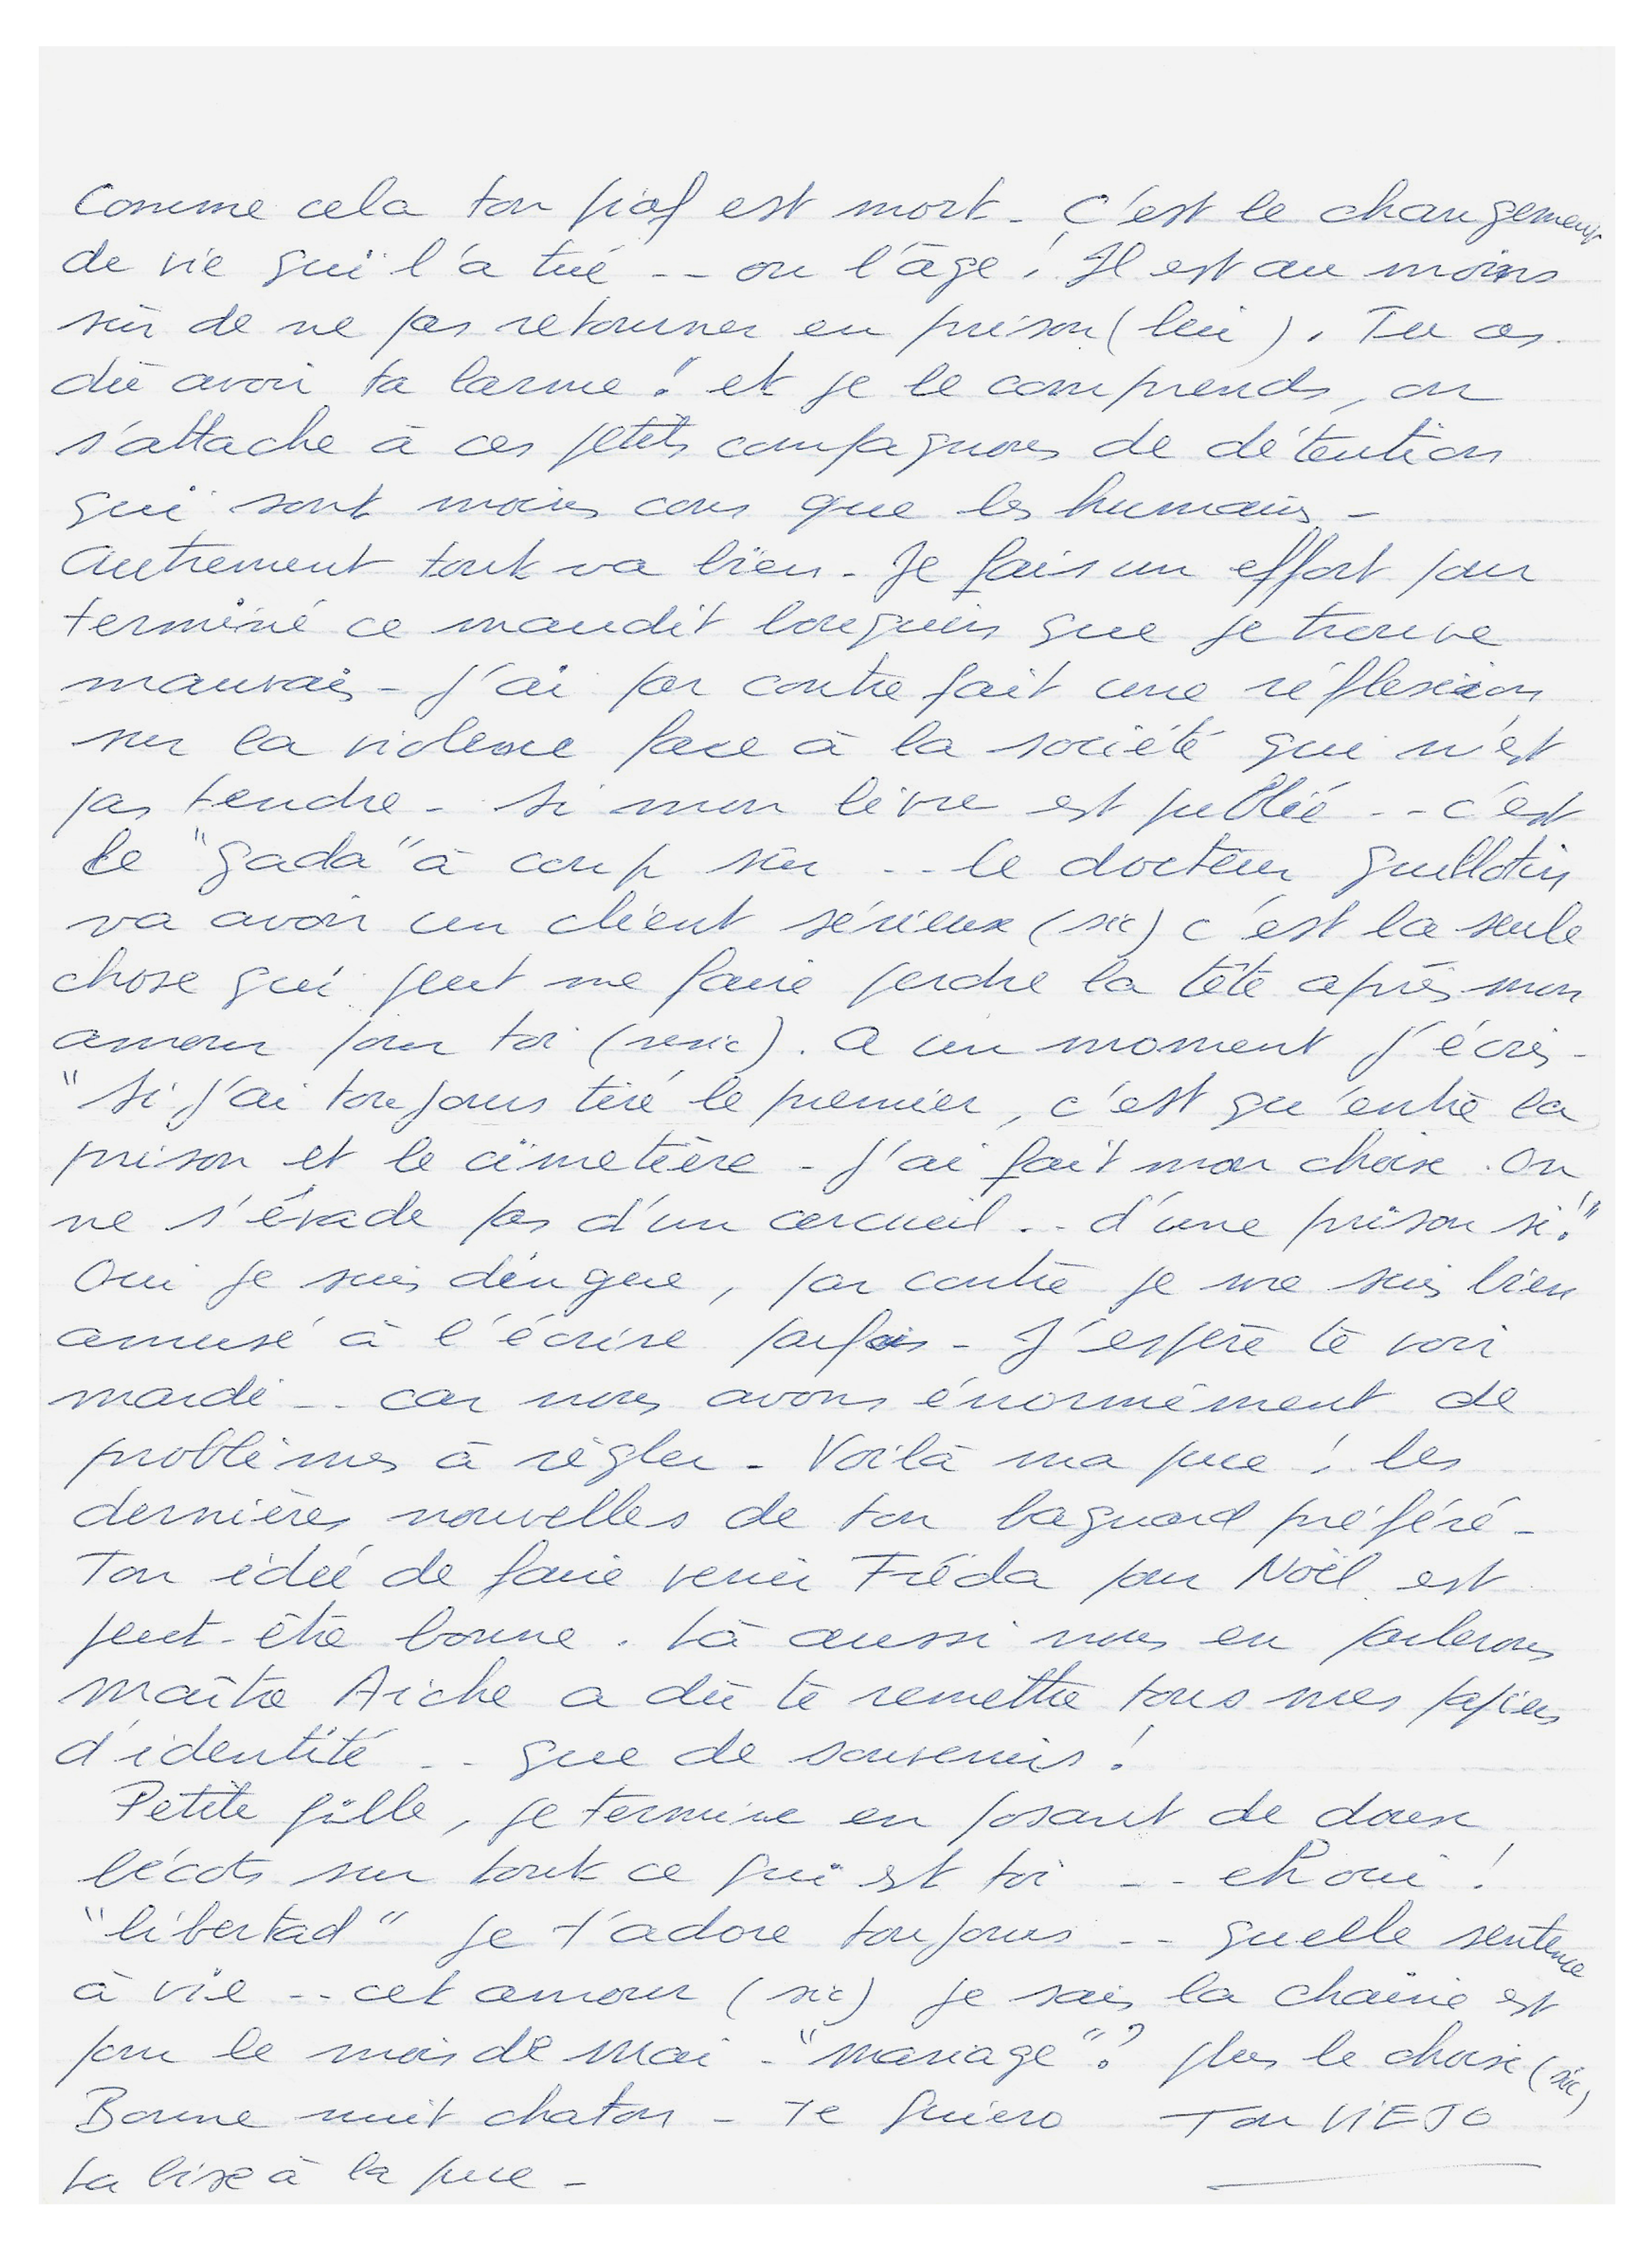 Comme cela ton piaf est mort - C'est le changement
de vie qui l'a tué -- ou l'âge ! Il est au moins
sûr de ne pas retourner en prison (lui). Tu as
dû avoir ta larme ! et je le comprends, on
s'attache à ces petits compagnons de détention
qui sont moins cons que les humains -
Autrement tout va bien - Je fais un effort pour
terminé ce maudit bouquin que je trouve
mauvais - J'ai par contre fait une réflexion
sur la violence face à la société qui n'est
pas tendre - Si mon livre est publié -- c'est
le "gada" à coup sûr -- le docteur guillotin
va avoir un client sérieux (sic) c'est la seule
chose qui peut me faire perdre la tête après mon
amour pour toi (resic). A un moment j'écris -
"Si j'ai toujours tiré le premier, c'est qu'entre la
prison et le cimetière - J'ai fait mon choix. On
ne s'évade pas d'un cercueil -- d'une prison si !"
Oui je suis dingue, par contre je me suis bien
amusé à l'écrire parfois - J'espère te voir
mardi -- car nous avons énormément de
problèmes à règler - Voilà ma puce ! les
dernières nouvelles de ton bagnard préféré -
Ton idée de faire venir Fréda pour Noël est
peut-être bonne. Là aussi nous en parlerons
Maître Aiche a dû te remettre tous mes papiers
d'identité -- que de souvenirs !
Petite fille, je termine en posant de doux
bécots sur tout ce qui est toi -- eh oui !
"libertad" je t'adore toujours -- quelle sentence
à vie -- cet amour (sic) je sais la chaîne est
pour le mois de mai - "mariage" ? plus le choix (sic)
Bonne nuit chaton - Te quiero Ton VIEJO
La bise à la puce -